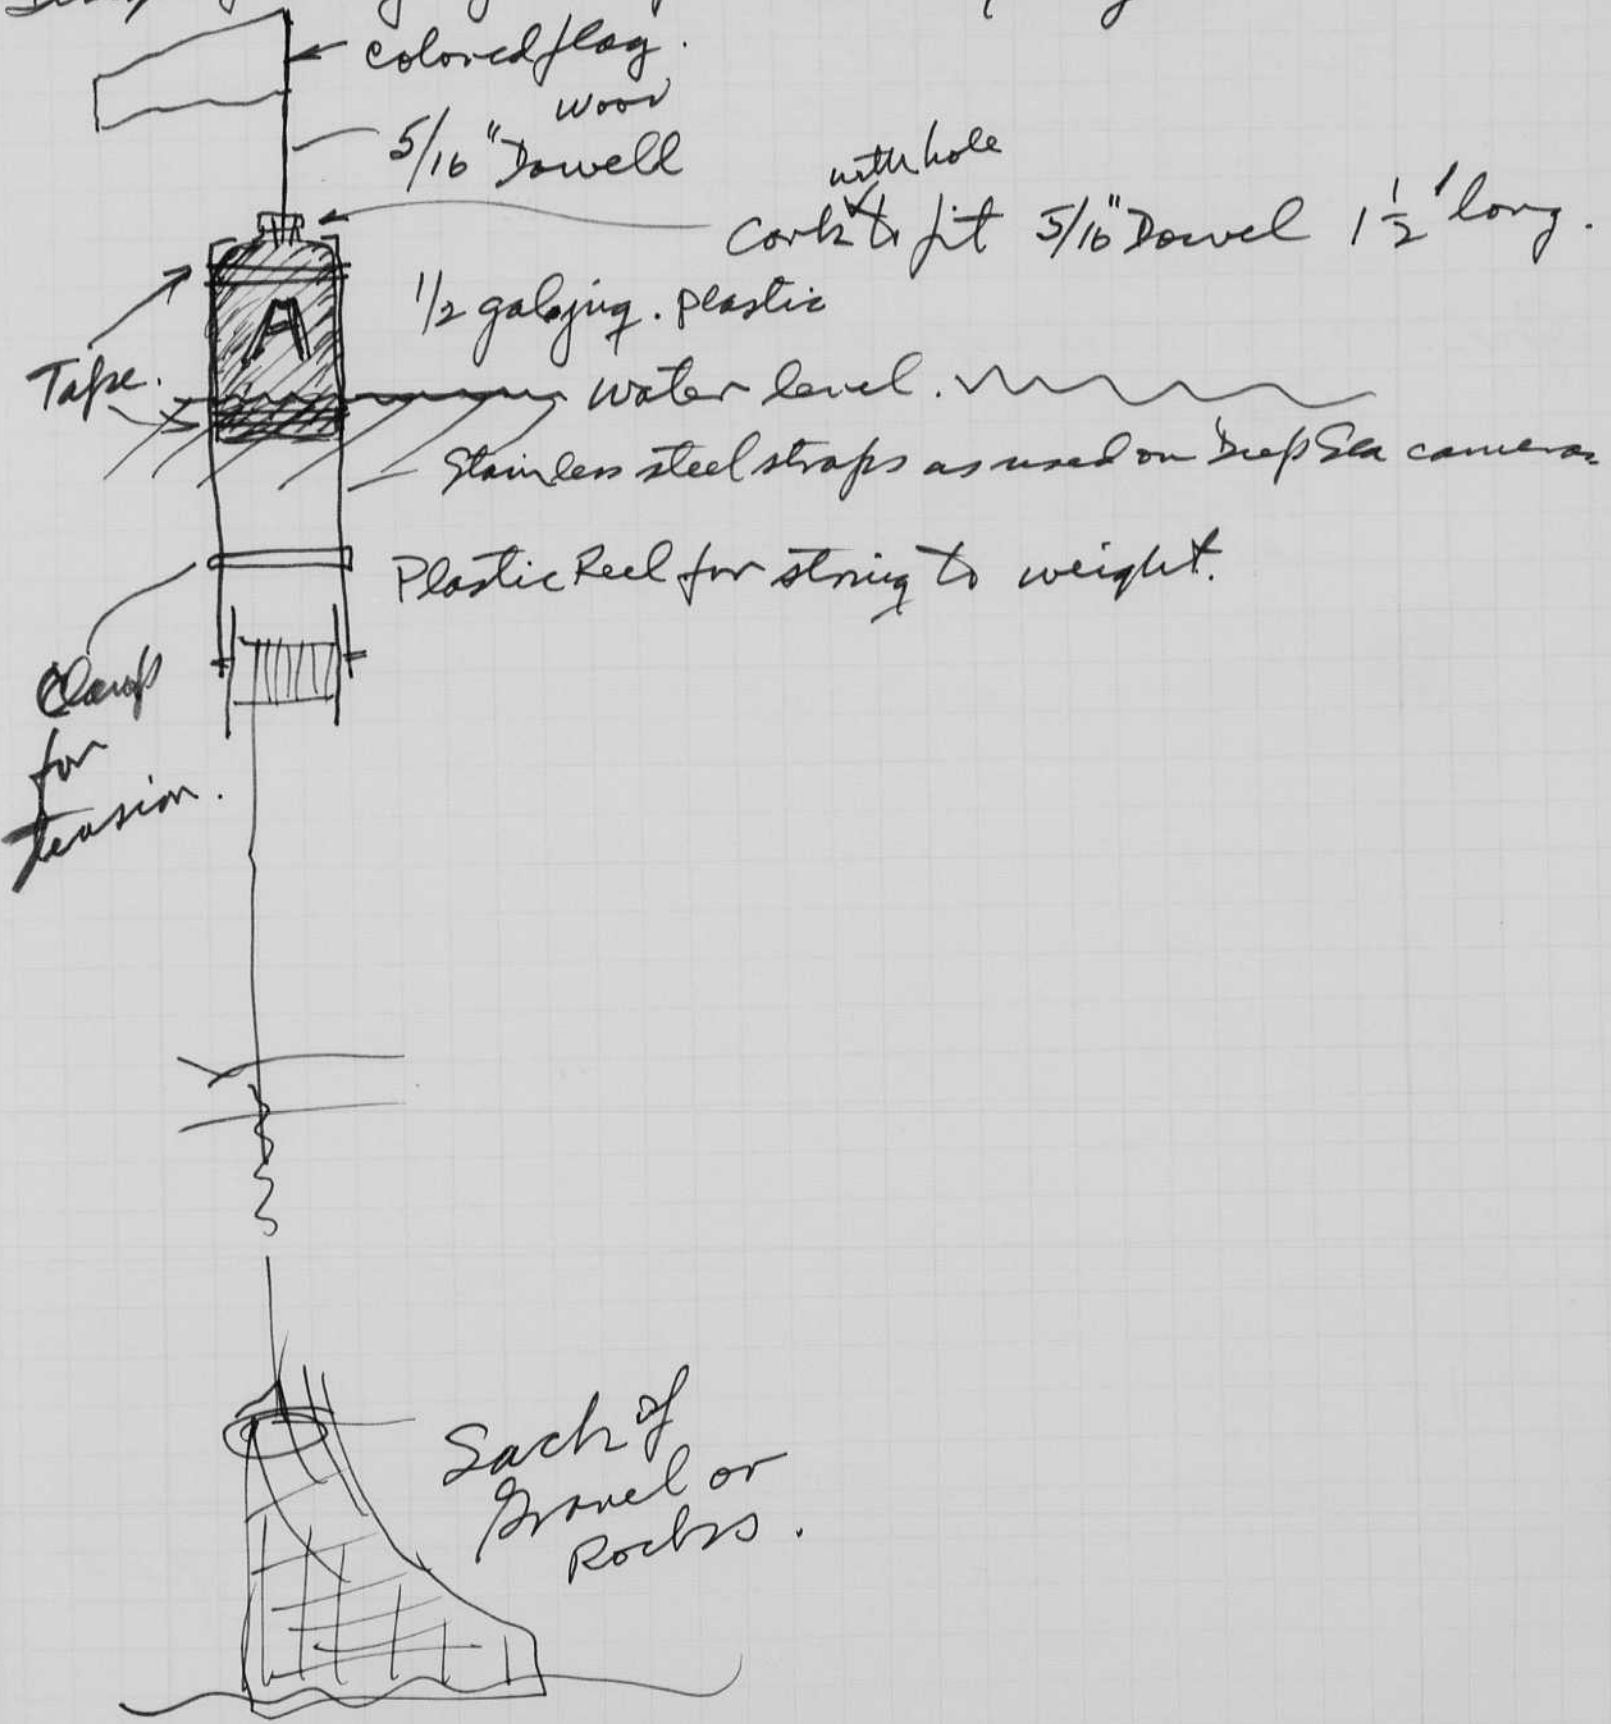 colored flag.
wood
5/16" Dowell
with hole
Cork to fit 5/16" Dowel 1 1/2' long.
A
1/2 gal jug. plastic
Tape.
water level.
Stainless steel straps as used on Deep Sea cameras
Plastic Reel for string to weight.
Clamp
for
tension.
Sack of
Gravel or
Rocks.